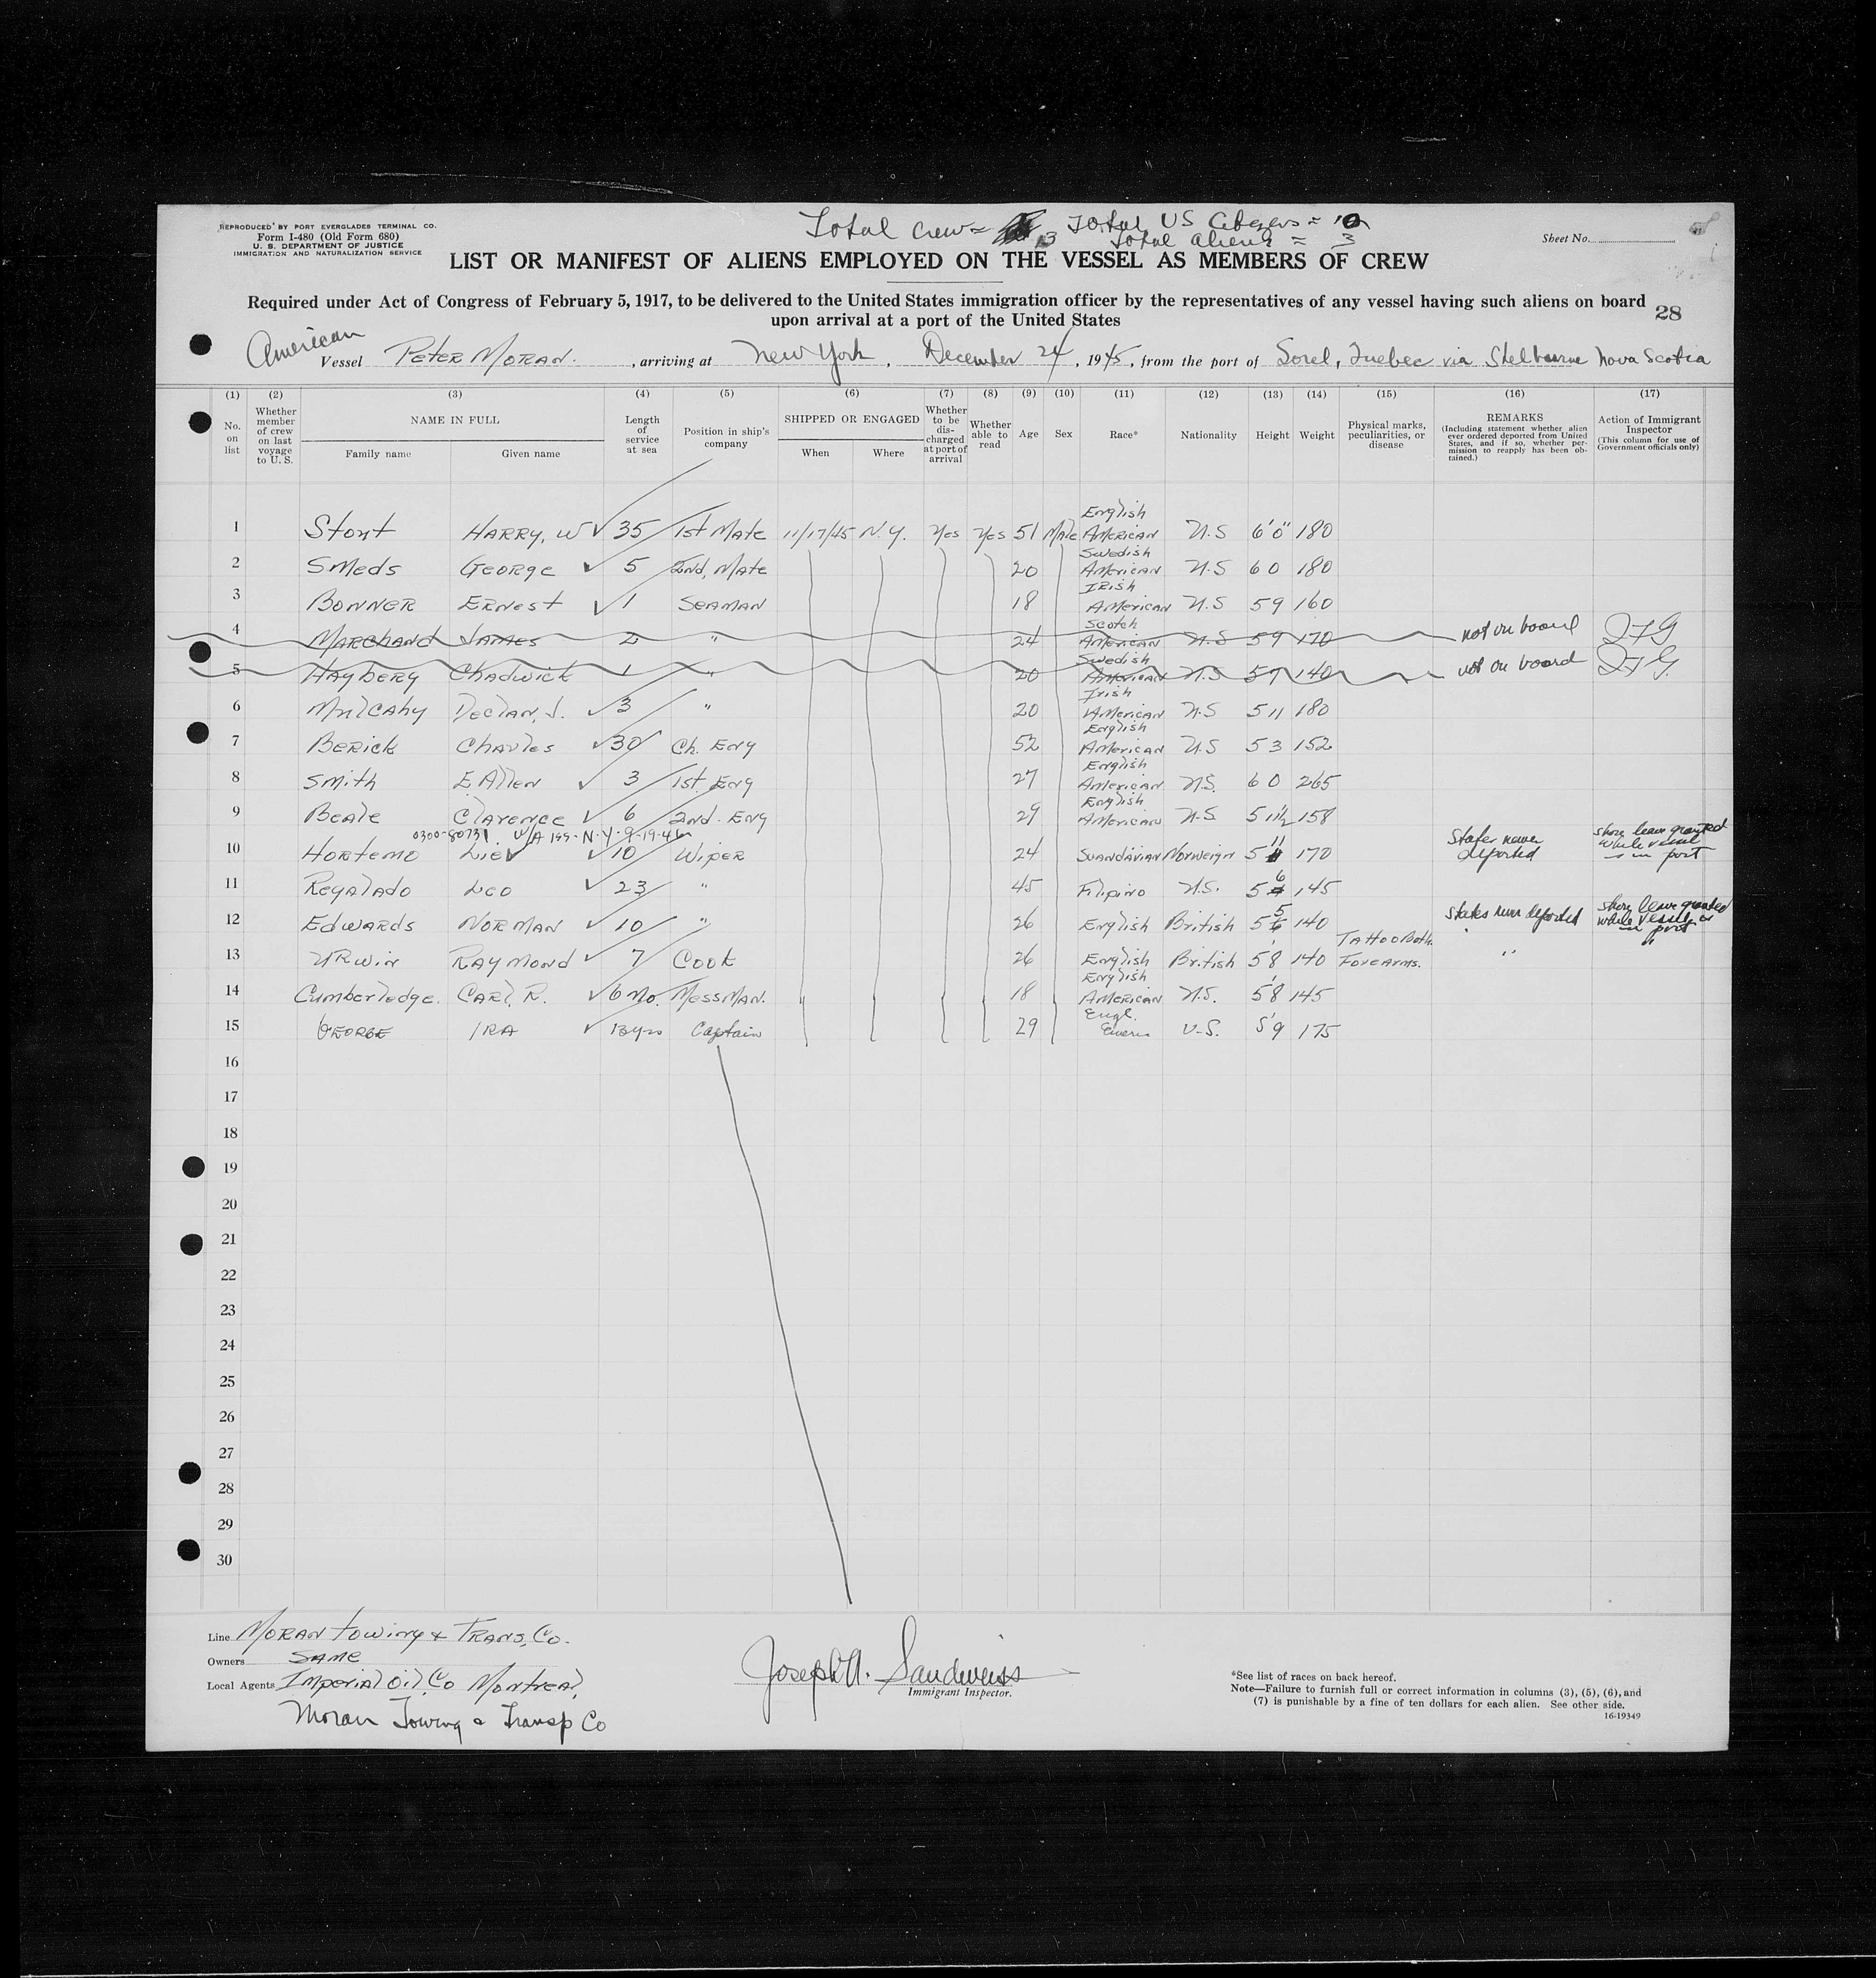 Total crew = 13 Total US Citizens = 10
Total aliens = 3
REPRODUCED BY PORT EVERGLADES TERMINAL CO.
Form I-480 (Old Form 680)
U. S. DEPARTMENT OF JUSTICE
IMMIGRATION AND NATURALIZATION SERVICE
Sheet No.
LIST OR MANIFEST OF ALIENS EMPLOYED ON THE VESSEL AS MEMBERS OF CREW
Required under Act of Congress of February 5, 1917, to be delivered to the United States immigration officer by the representatives of any vessel having such aliens on board
upon arrival at a port of the United States
28
American
Vessel Peter Moran. , arriving at New York , December 24 , 1945, from the port of Sorel, Quebec via Shelburne Nova Scotia
(1) (2) (3) (4) (5) (6) (7) (8) (9) (10) (11) (12) (13) (14) (15) (16) (17)
No. on list
Whether member of crew on last voyage to U. S.
NAME IN FULL
Family name Given name
Length of service at sea
Position in ship's company
SHIPPED OR ENGAGED
When Where
Whether to be discharged at port of arrival
Whether able to read
Age Sex Race* Nationality Height Weight
Physical marks, peculiarities, or disease
REMARKS
(Including statement whether alien ever ordered deported from United States, and if so, whether permission to reapply has been obtained.)
Action of Immigrant Inspector
(This column for use of Government officials only)
1 Stout Harry, W ✓ 35 1st Mate 11/17/45 N.Y. Yes Yes 51 Male English American U.S 6'0" 180
2 Smeds George ✓ 5 2nd, Mate 20 Swedish American U.S 6 0 180
3 Bonner Ernest ✓ 1 Seaman 18 Irish American U.S 5 9 160
4 Marchand James 2 " 24 Scotch American U.S 5 9 170 not on board
5 Hayberg Chadwick 1 " 20 Swedish American U.S 5 7 140 not on board
6 Mulcahy Declan, J. ✓ 3 " 20 Irish American U.S 5 11 180
7 Berick Charles ✓ 30 Ch. Eng 52 English American U.S 5 3 152
8 Smith E Allen ✓ 3 1st Eng 27 English American U.S. 6 0 265
9 Beale Clarence ✓ 6 2nd. Eng 29 English American U.S 5 11½ 158
0300-80731
10 Hortemo Lie ✓ 10 Wiper 24 Scandavian Norweign 5 11 170 States never deported shore leave granted while vessel is in port
11 Regalado Leo ✓ 23 " 45 Filipino U.S. 5 6 145
12 Edwards Norman ✓ 10 " 26 English British 5 5 140 States never deported shore leave granted while vessel is in port
13 Urwin Raymond ✓ 7 Cook 26 English British 5 8 140 Tattoo Both Forearms. " "
14 Cumberledge. Carl, R. ✓ 6 Mo. Messman. 18 English American U.S. 5'8 145
15 George Ira ✓ 13 yrs Captain 29 Engl. U.S. 5'9 175
16
17
18
19
20
21
22
23
24
25
26
27
28
29
30
Line Moran Towing & Trans, Co.
Owners Same
Local Agents Imperial Oil Co Montreal,
Moran Towing & Transp Co
Joseph A. Sandweiss
Immigrant Inspector.
*See list of races on back hereof.
Note—Failure to furnish full or correct information in columns (3), (5), (6), and
(7) is punishable by a fine of ten dollars for each alien. See other side.
16-19349